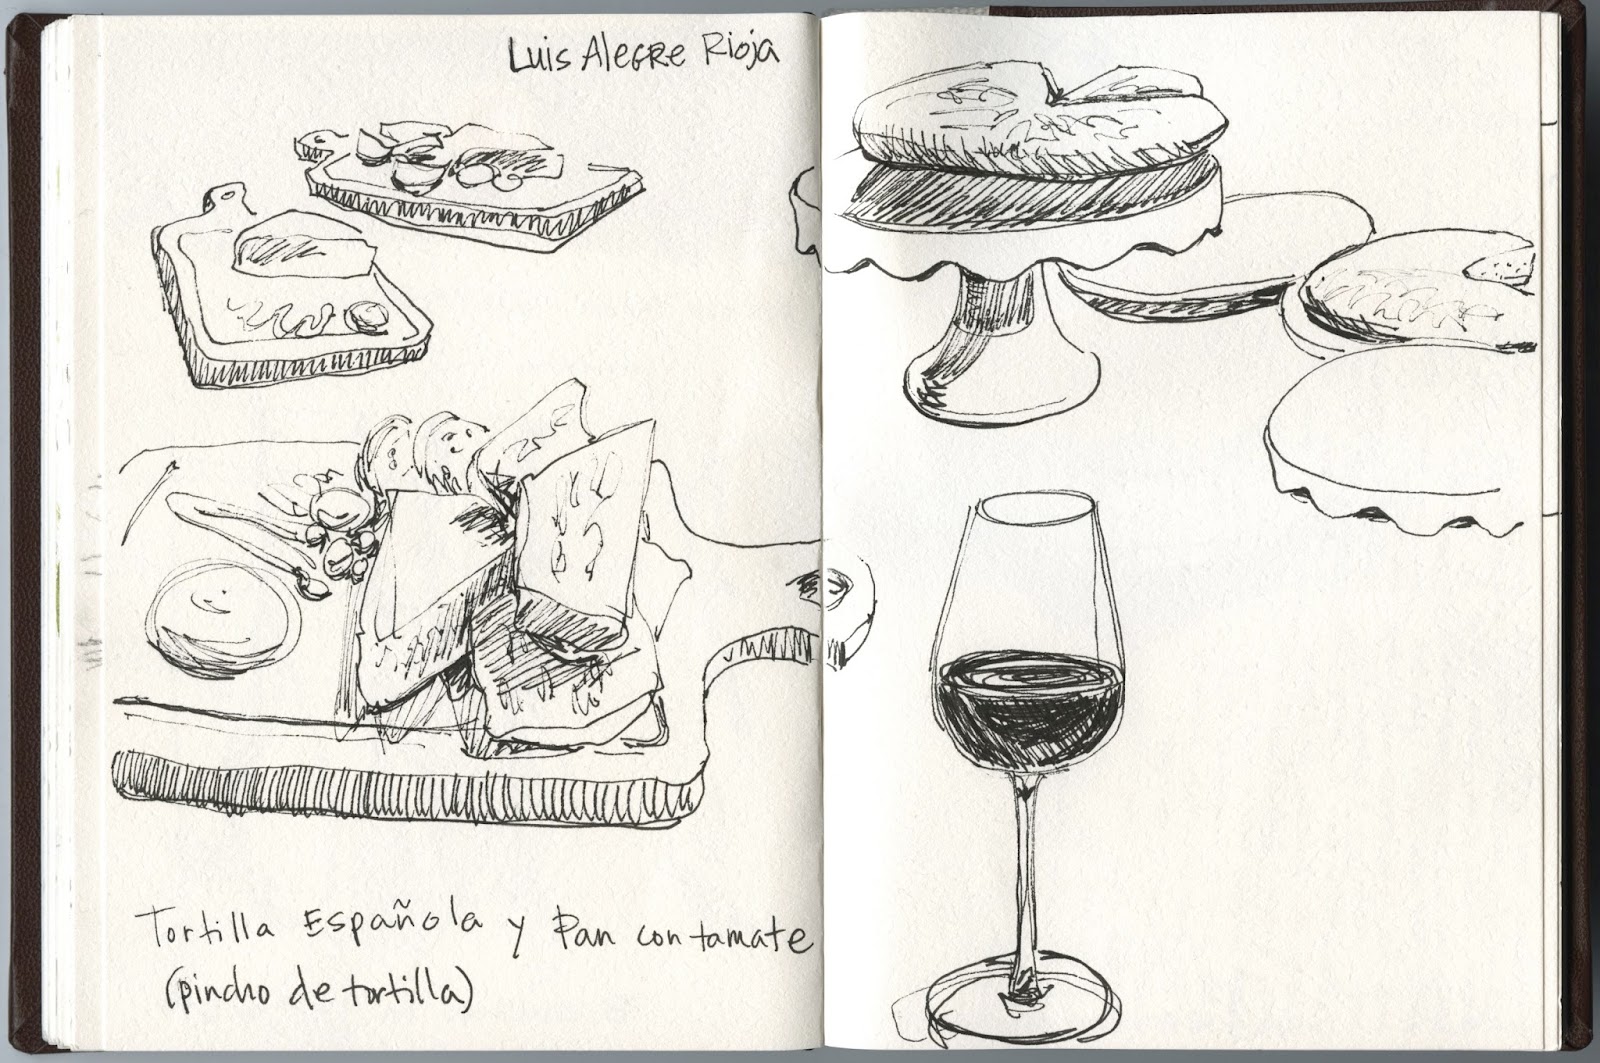 Luis Alegre Rioja
Tortilla Española y Pan con tamate
(pincho de tortilla)